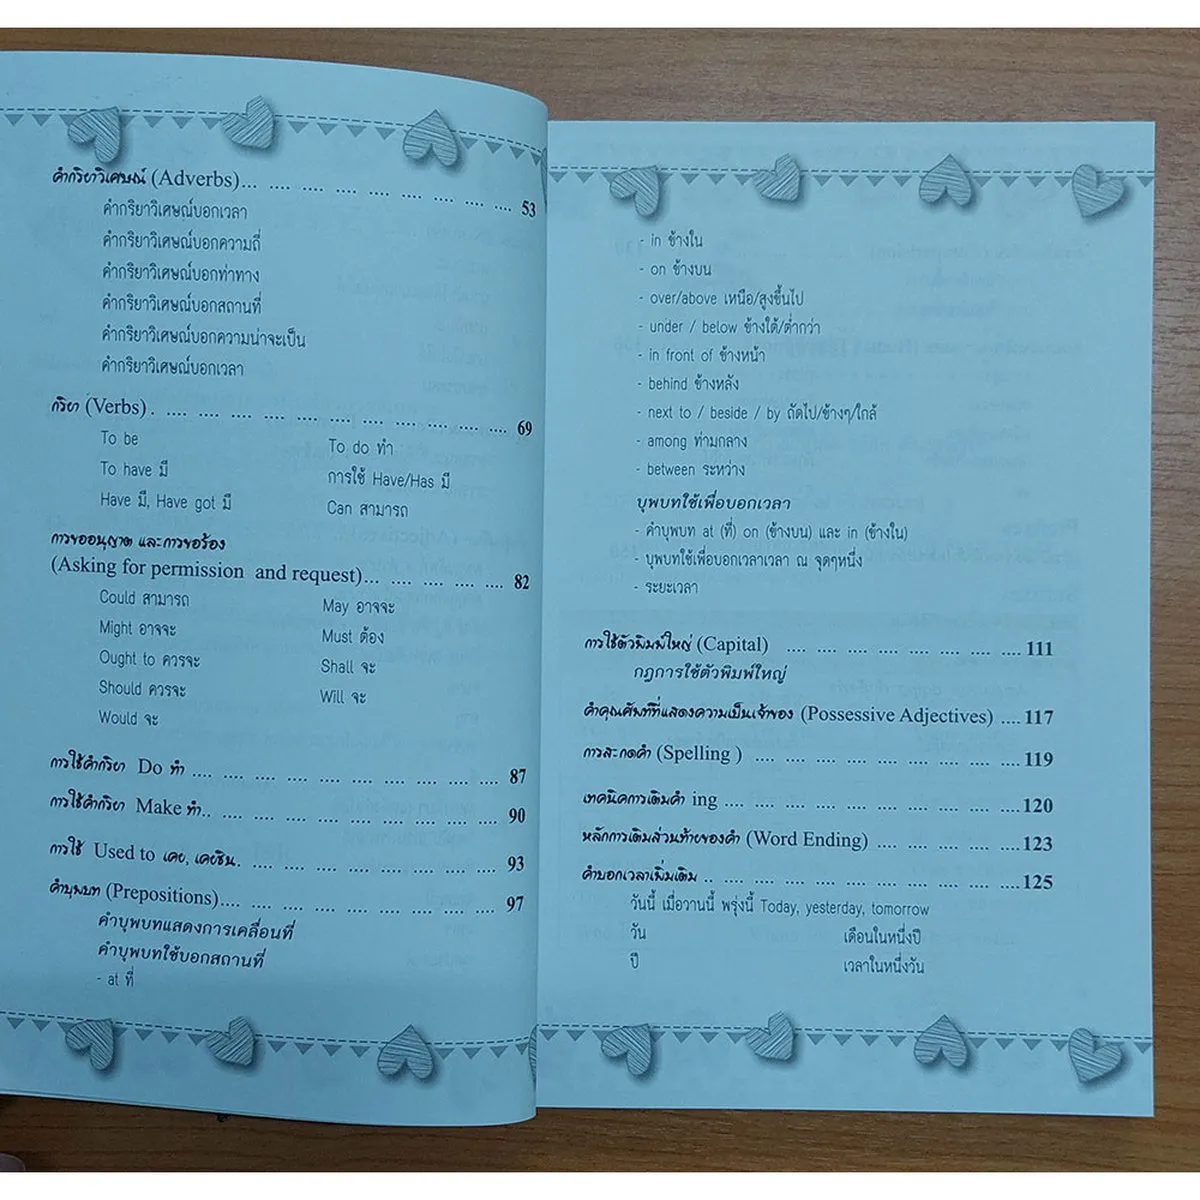 คำกริยาวิเศษณ์ (Adverbs)... .... .... .... .... .... .... .... .... 53
คำกริยาวิเศษณ์บอกเวลา
คำกริยาวิเศษณ์บอกความถี่
คำกริยาวิเศษณ์บอกท่าทาง
คำกริยาวิเศษณ์บอกสถานที่
คำกริยาวิเศษณ์บอกความน่าจะเป็น
คำกริยาวิเศษณ์บอกเวลา
กริยา (Verbs) . .... .... .... .... .... .... .... .... .... .... .... 69
To be
To do ทำ
To have มี
การใช้ Have/Has มี
Have มี, Have got มี
Can สามารถ
การขออนุญาต และการขอร้อง
(Asking for permission and request)... .... .... .... .... 82
Could สามารถ
May อาจจะ
Might อาจจะ
Must ต้อง
Ought to ควรจะ
Shall จะ
Should ควรจะ
Will จะ
Would จะ
การใช้คำกริยา Do ทำ .... .... .... .... .... .... .... .... .... .... 87
การใช้คำกริยา Make ทำ.. .... .... .... .... .... .... .... .... .... 90
การใช้ Used to เคย, เคยชิน. .... .... .... .... .... .... .... .... 93
คำบุพบท (Prepositions).... .... .... .... .... .... .... .... .... 97
คำบุพบทแสดงการเคลื่อนที่
คำบุพบทใช้บอกสถานที่
- at ที่
- in ข้างใน
- on ข้างบน
- over/above เหนือ/สูงขึ้นไป
- under / below ข้างใต้/ต่ำกว่า
- in front of ข้างหน้า
- behind ข้างหลัง
- next to / beside / by ถัดไป/ข้างๆ/ใกล้
- among ท่ามกลาง
- between ระหว่าง
บุพบทใช้เพื่อบอกเวลา
- คำบุพบท at (ที่) on (ข้างบน) และ in (ข้างใน)
- บุพบทใช้เพื่อบอกเวลาเวลา ณ จุดๆหนึ่ง
- ระยะเวลา
การใช้ตัวพิมพ์ใหญ่ (Capital) .... .... .... .... .... .... .... .... 111
กฎการใช้ตัวพิมพ์ใหญ่
คำคุณศัพท์ที่แสดงความเป็นเจ้าของ (Possessive Adjectives) .... 117
การสะกดคำ (Spelling ) .... .... .... .... .... .... .... .... .... 119
เทคนิคการเติมคำ ing .... .... .... .... .... .... .... .... .... .... 120
หลักการเติมส่วนท้ายของคำ (Word Ending) .... .... .... .... .... 123
คำบอกเวลาเพิ่มเติม .. .... .... .... .... .... .... .... .... .... .... 125
วันนี้ เมื่อวานนี้ พรุ่งนี้ Today, yesterday, tomorrow
วัน
เดือนในหนึ่งปี
ปี
เวลาในหนึ่งวัน